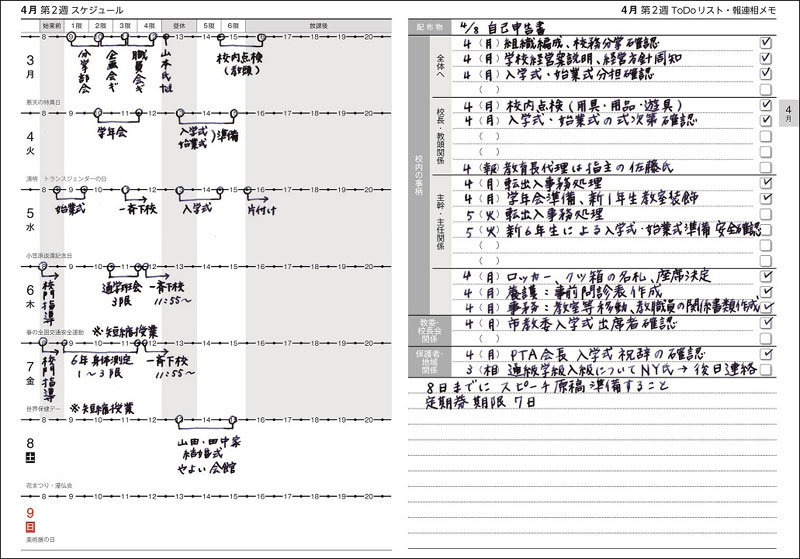 4月 第2週 スケジュール
始業前 1限 2限 3限 4限 昼休 5限 6限 放課後
8 9 10 11 12 13 14 15 16 17 18 19 20
3 月
分掌部会
企画会ギ
職員会ギ
校内点検
(教頭)
悪天の特異日
8 9 10 11 12 13 14 15 16 17 18 19 20
4 火
学年会
入学式
始業式 )準備
清明 トランスジェンダーの日
8 9 10 11 12 13 14 15 16 17 18 19 20
5 水
始業式 一斉下校 入学式 片付け
小笠原返還記念日
8 9 10 11 12 13 14 15 16 17 18 19 20
6 木
校門指導
通学班会
3限
一斉下校
11:55〜
※短縮授業
春の全国交通安全運動
8 9 10 11 12 13 14 15 16 17 18 19 20
7 金
校門指導
6年身体測定
1〜3限
一斉下校
11:55〜
※短縮授業
世界保健デー
8 9 10 11 12 13 14 15 16 17 18 19 20
8 土
山田・田中家
結婚式
やよい会館
花まつり・灌仏会
8 9 10 11 12 13 14 15 16 17 18 19 20
9 日
美術館の日
4月 第2週 ToDoリスト・報連相メモ
配布物 4/8 自己申告書
校内の事柄
全体へ
4 (月) 組織編成、校務分掌確認
4 (月) 学校経営案説明、経営方針周知
4 (月) 入学式・始業式分担確認
( )
校長・教頭関係
4 (月) 校内点検(用具・用品・遊具)
4 (月) 入学式・始業式の式次第確認
( )
( )
4 (報) 教育長代理は指主の佐藤氏
主幹・主任関係
4 (月) 転出入事務処理
4 (月) 学年会準備、新1年生教室装飾
5 (火) 転出入事務処理
5 (火) 新6年生による入学式・始業式準備 安全確認
( )
( )
4 (月) ロッカー、クツ箱の名札、座席決定
4 (月) 養護:事前問診表作成
4 (月) 事務:教室等移動、教職員の関係書類作成
教委・校長会関係
4 (月) 市教委入学式出席者確認
( )
保護者・地域関係
4 (月) PTA会長 入学式祝辞の確認
3 (相) 通級学級入級についてNY氏→後日連絡
8日までに スピーチ原稿準備すること
定期券期限 7日
4月